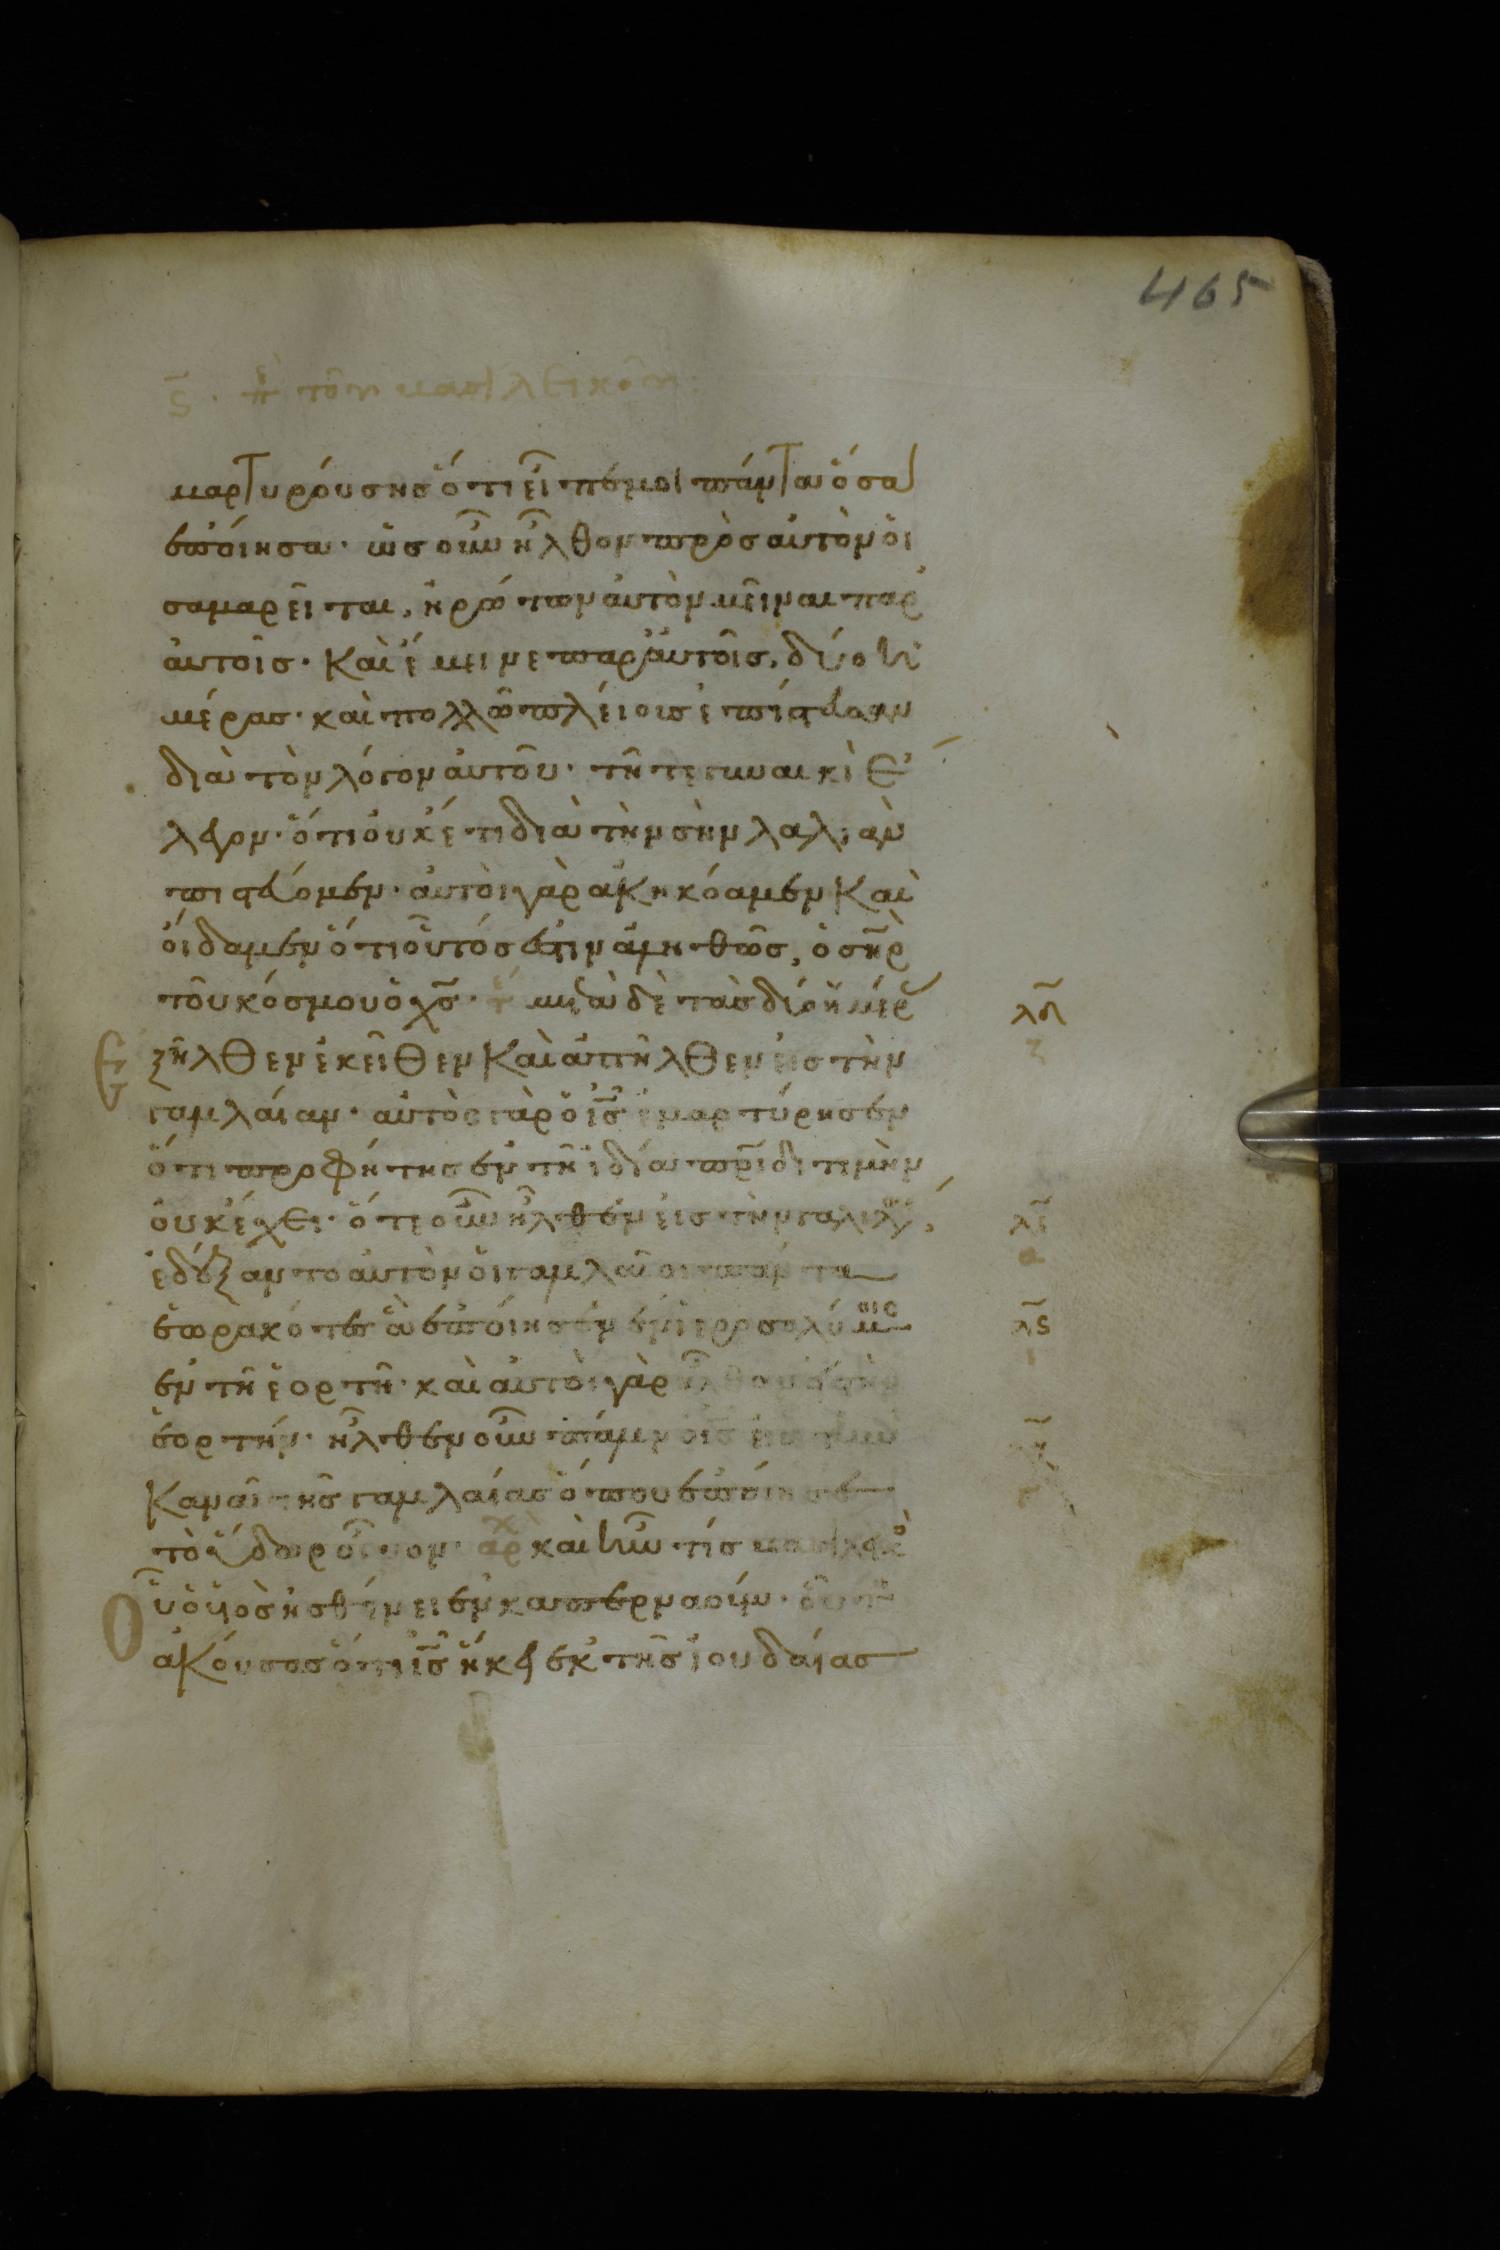 465
ς̄ · π τοῦ βασιλϊκοῦ
μαρτυρούσης ὅτι εἶπέ μοι πάντα ὅσα
ἐποίησα · ὡς οὖν ἦλθον πρὸς αὐτὸν οἱ
σαμαρεῖται, ἠρώτων αὐτὸν μεῖναι παρ'
αὐτοῖς · Καὶ ἔμεινε παρ' αὐτοῖς, δύο ἡ
μέρας · καὶ πολλῶ πλείοις ἐπίστευσαν
διὰ τὸν λόγον αὐτοῦ · τῆ τε γυναικὶ ἔ
λεγον · ὅτι οὐκέτι διὰ τὴν σὴν λαλιὰν
πιστεύομεν · αὐτοὶ γὰρ ἀκηκόαμεν Καὶ
οἴδαμεν ὅτι οὗτός ἐστιν ἀληθῶς, ὁ σ̅η̅ρ̅
τοῦ κόσμου ὁ χ̅ς̅ · μετὰ δὲ τὰς δύο ἡμέρ
Ἐξῆλθεν ἐκεῖθεν Καὶ ἀπῆλθεν εἰς τὴν
γαλιλαίαν · αὐτὸς γὰρ ὁ ι̅ς̅ ἐμαρτύρησεν
ὅτι προφήτης ἐν τῆ ἰδία π̅ρ̅ι̅δι τιμὴν
οὐκ ἔχει · ὅτε οὖν ἦλθεν εἰς τὴν γαλιλαί,
ἐδέξαντο αὐτὸν οἱ γαλιλαῖοι πάντα
ἑωρακότες ἃ ἐποίησεν ἐν ἱεροσολύμοις
ἐν τῆ ἑορτῆ · καὶ αὐτοὶ γὰρ ἦλθον εἰς τὴν
ἑορτήν · ἦλθεν οὖν πάλιν ὁ ι̅ς̅ εἰς τὴν
Κανᾶ τῆς γαλιλαίας ὅπου ἐποίησε
τὸ ὕδωρ οἶνον · αρχ καὶ ἦν τίς βασιλικὸ
οὗ ὁ υἱὸς ἠσθένει ἐν καπερναούμ · οὗτος
ἀκούσας ὅτι ι̅ς̅ ἥκει ἐκ τῆς ἰουδαίας
λδ̄
ζ
λε̄
α
λς̄